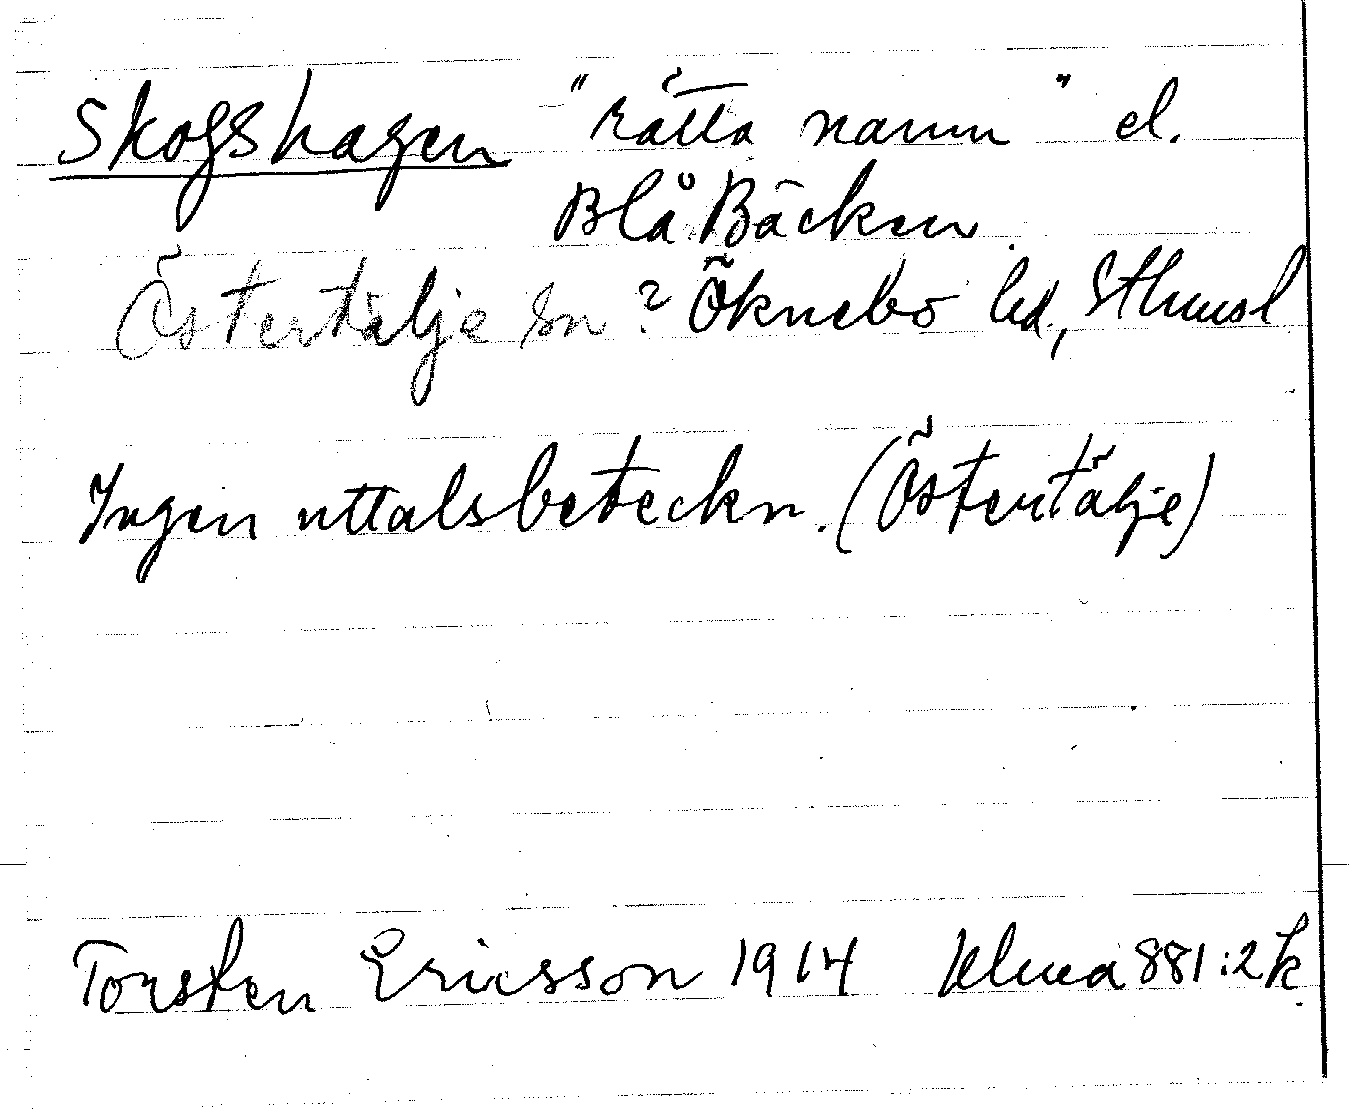 Skogshagen "rätta namn" el.
Blå Bäcken
Östertälje sn? Öknebo hd, Sthmsl
Ingen uttalsbeteckn. (Östertälje)
Torsten Ericsson 1914 881:2k